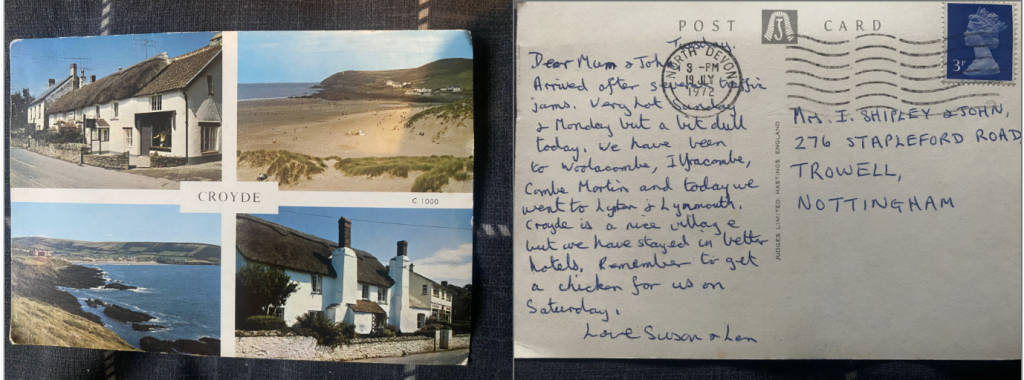 CROYDE
C 1000
POST CARD
Tuesday.
Dear Mum & John
Arrived after several traffic
jams. Very hot Sunday
& Monday but a bit dull
today. We have been
to Woolacombe, Ilfracombe,
Combe Martin and today we
went to Lynton & Lynmouth.
Croyde is a nice village
but we have stayed in better
hotels. Remember to get
a chicken for us on
Saturday.
Love Susan & Len
NORTH DEVON
3 - PM
19 JLY
1972
3P
JUDGES LIMITED HASTINGS ENGLAND
Mrs. I. SHIPLEY & JOHN,
276 STAPLEFORD ROAD
TROWELL,
NOTTINGHAM